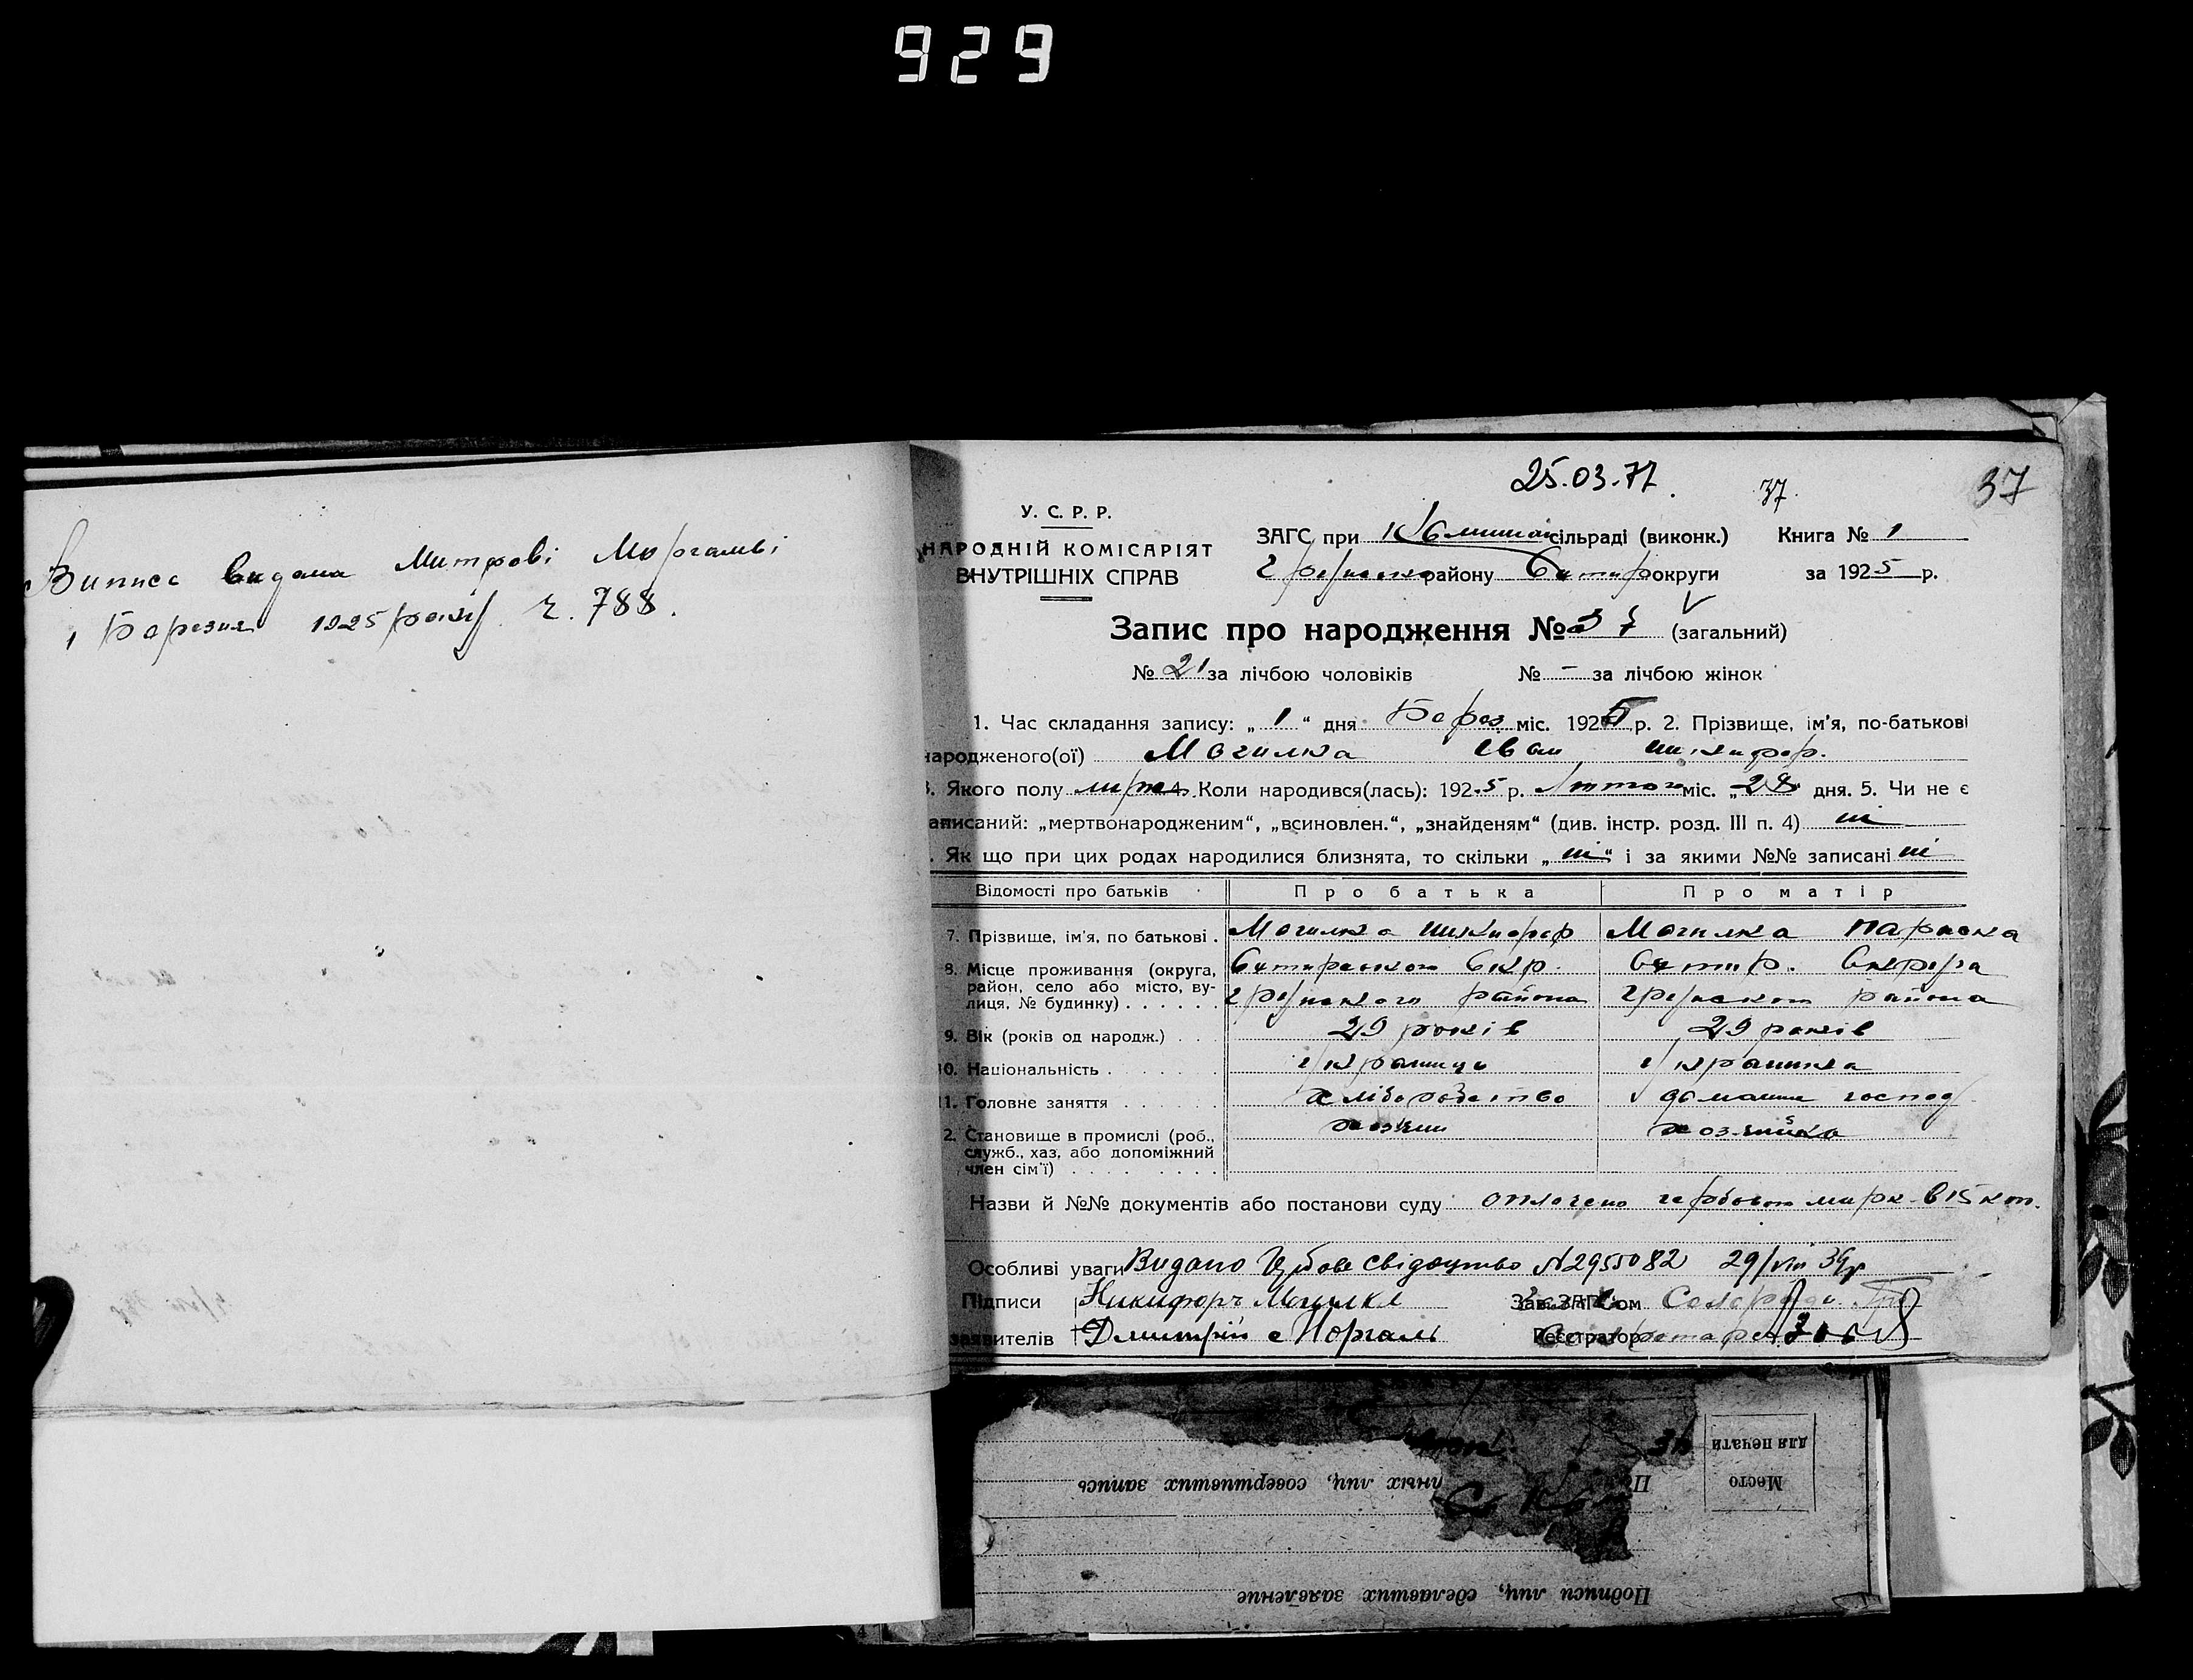 929
Випись видана Митрові Моргалеві
1 Березня 1925 року ч. 788.
25.03.77
37
37
У. С. Р. Р.
НАРОДНІЙ КОМІСАРІЯТ
ВНУТРІШНІХ СПРАВ
ЗАГС при сільраді (виконк.) Книга № 1
району округи за 1925 р.
Запис про народження № 37 (загальний)
№ 21 за лічбою чоловіків № – за лічбою жінок
1. Час складання запису: „ 1 “ дня Берез міс. 1925 р. 2. Прізвище, ім'я, по-батькові
народженого(ої) Могилка Іван никифор.
3. Якого полу 4. Коли народився(лась): 1925 р. Лютого міс. „28 дня. 5. Чи не є
записаний: „мертвонародженим“, „всиновлен.“, „знайденям“ (див. інстр. розд. III п. 4) ні
. Як що при цих родах народилися близнята, то скільки „ ні “ і за якими №№ записані ні
Відомості про батьків Про батька Про матір
7. Прізвище, ім'я, по батькові . Могилка никифор Могилка Параска
8. Місце проживання (округа, район, село або місто, вулиця, № будинку) . . . . . Охтирського Окр. Охтир. Округа
Грунського района Грунского района
9. Вік (років од народж.) . . . 29 років 29 років
10. Національність . . . . . . українець українка
11. Головне заняття . . . . . хліборобство домашнє господ
12. Становище в промислі (роб., служб., хаз. або допоміжний член сім'ї) . . . . . . . . . хозяїн хозяйка
Назви й №№ документів або постанови суду оплачено гербовою марк в 15 коп.
Особливі уваги Видано свідоцтво N2955082 29/VIII 39р
Підписи Никифоръ Могилка Зав. ЗАГС'ом
заявителів Дмитрій Моргаль Реєстратор
Место
для печати
лиц, совершивших запись
Подписи лиц, сделавших заявление